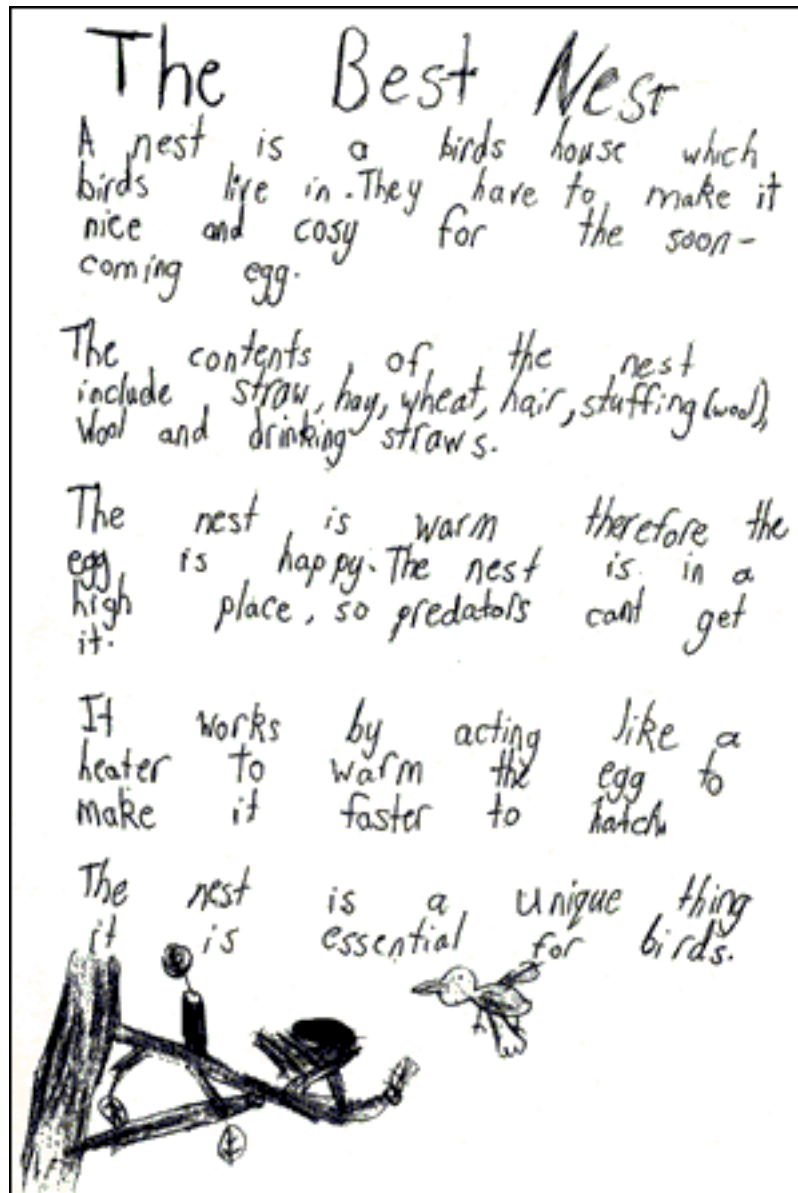 The Best Nest
A nest is a birds house which
birds live in. They have to make it
nice and cosy for the soon-
coming egg.
The contents of the nest
include straw, hay, wheat, hair, stuffing (wool),
Wool and drinking straws.
The nest is warm therefore the
egg is happy. The nest is in a
high place, so predators cant get
it.
It works by acting like a
heater to warm the egg to
make it faster to hatch
The nest is a unique thing
it is essential for birds.